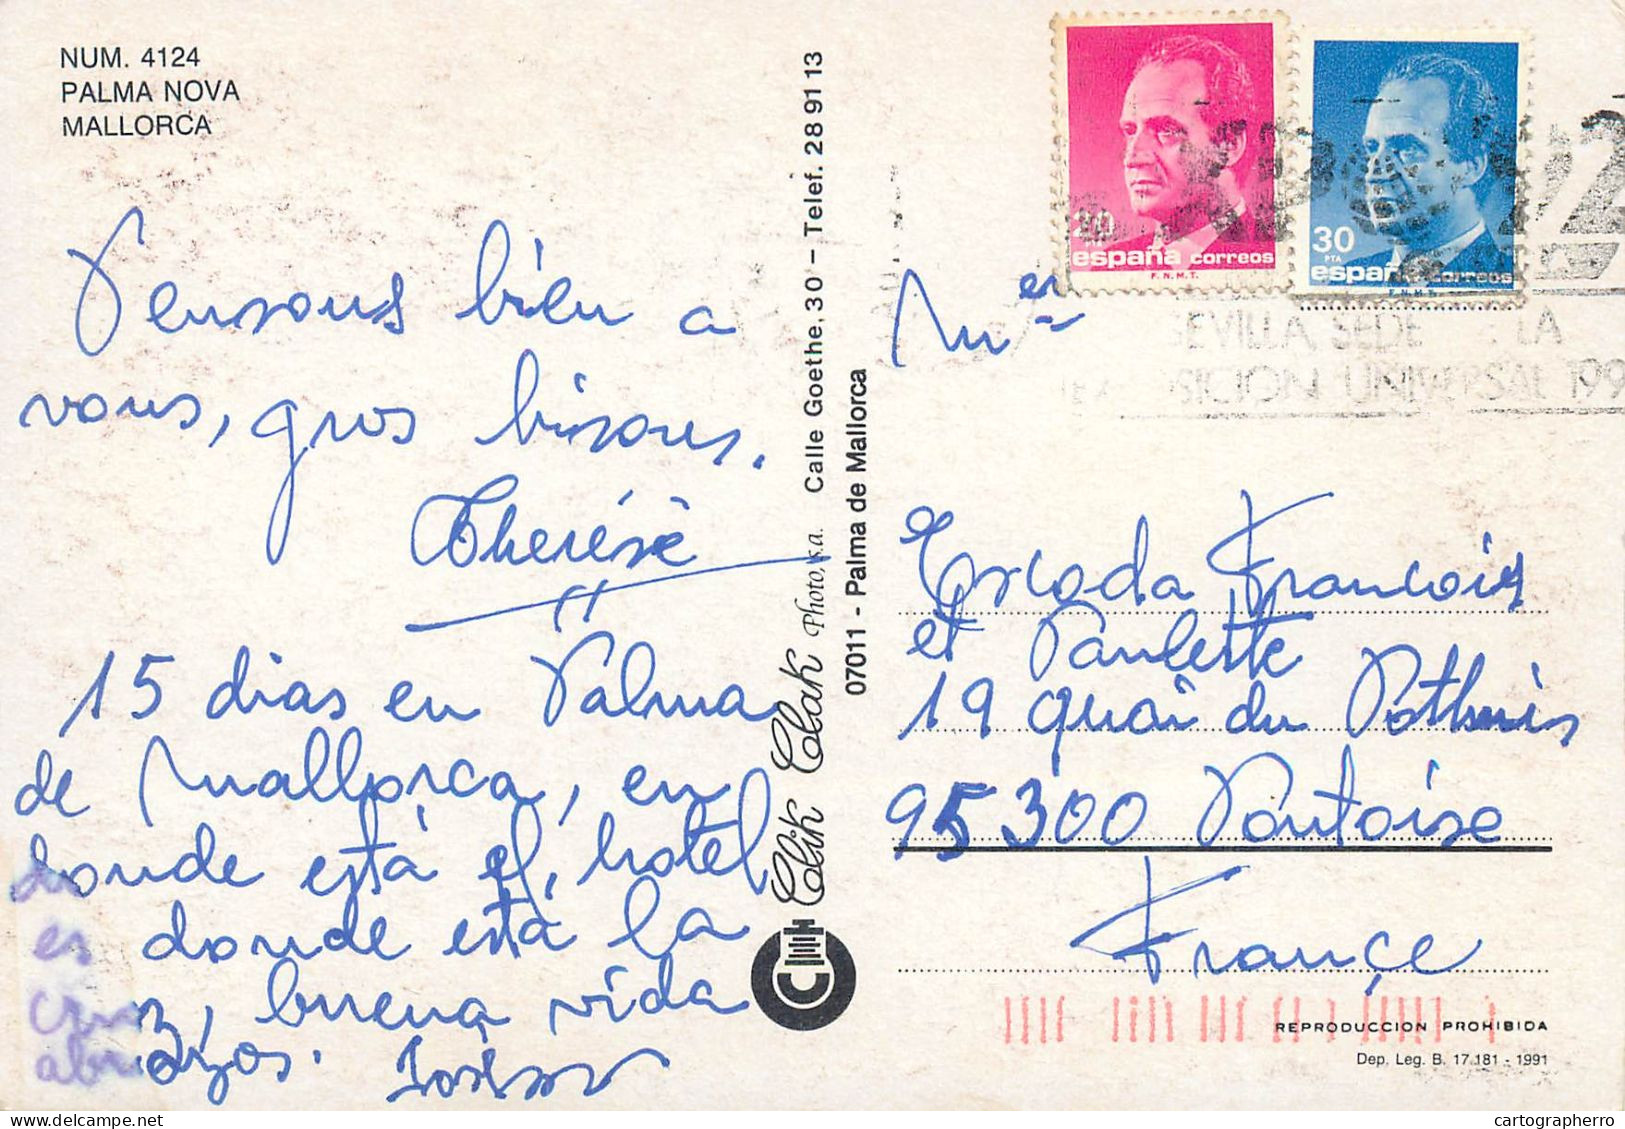 NUM. 4124
PALMA NOVA
MALLORCA
Pensons bien a
vous, gros bisous.
Thérèse
15 dias en Palma
de Mallorca, en
donde está el hotel
es donde está la
cruz, buena vida
abrazos.
Clik Clak Photo, s.a. Calle Goethe, 30 – Telef. 28 91 13
07011 - Palma de Mallorca
20
PTA
españa correos
F.N.M.T.
30
PTA
españa correos
F.N.M.T.
SEVILLA SEDE LA
EXPOSICION UNIVERSAL 199
Escoda Francois
et Paulette
19 quai du Pothuis
95300 Pontoise
Françe
REPRODUCCION PROHIBIDA
Dep. Leg. B. 17.181 - 1991
cartographerro